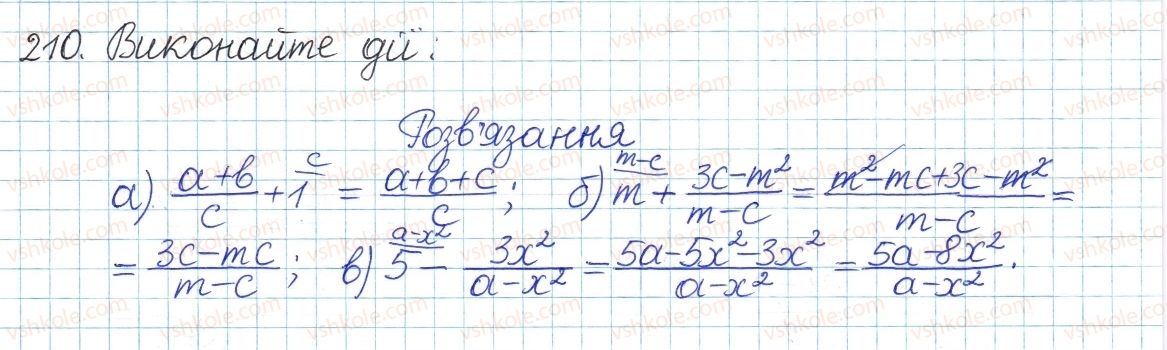 210. Виконайте дії:
Розв'язання
а) \frac{a+b}{c} + 1^{/c} = \frac{a+b+c}{c}; б) m^{/m-c} + \frac{3c-m^2}{m-c} = \frac{m^2-mc+3c-m^2}{m-c} =
= \frac{3c-mc}{m-c}; в) 5^{/a-x^2} - \frac{3x^2}{a-x^2} = \frac{5a-5x^2-3x^2}{a-x^2} = \frac{5a-8x^2}{a-x^2}.
vshkole.com